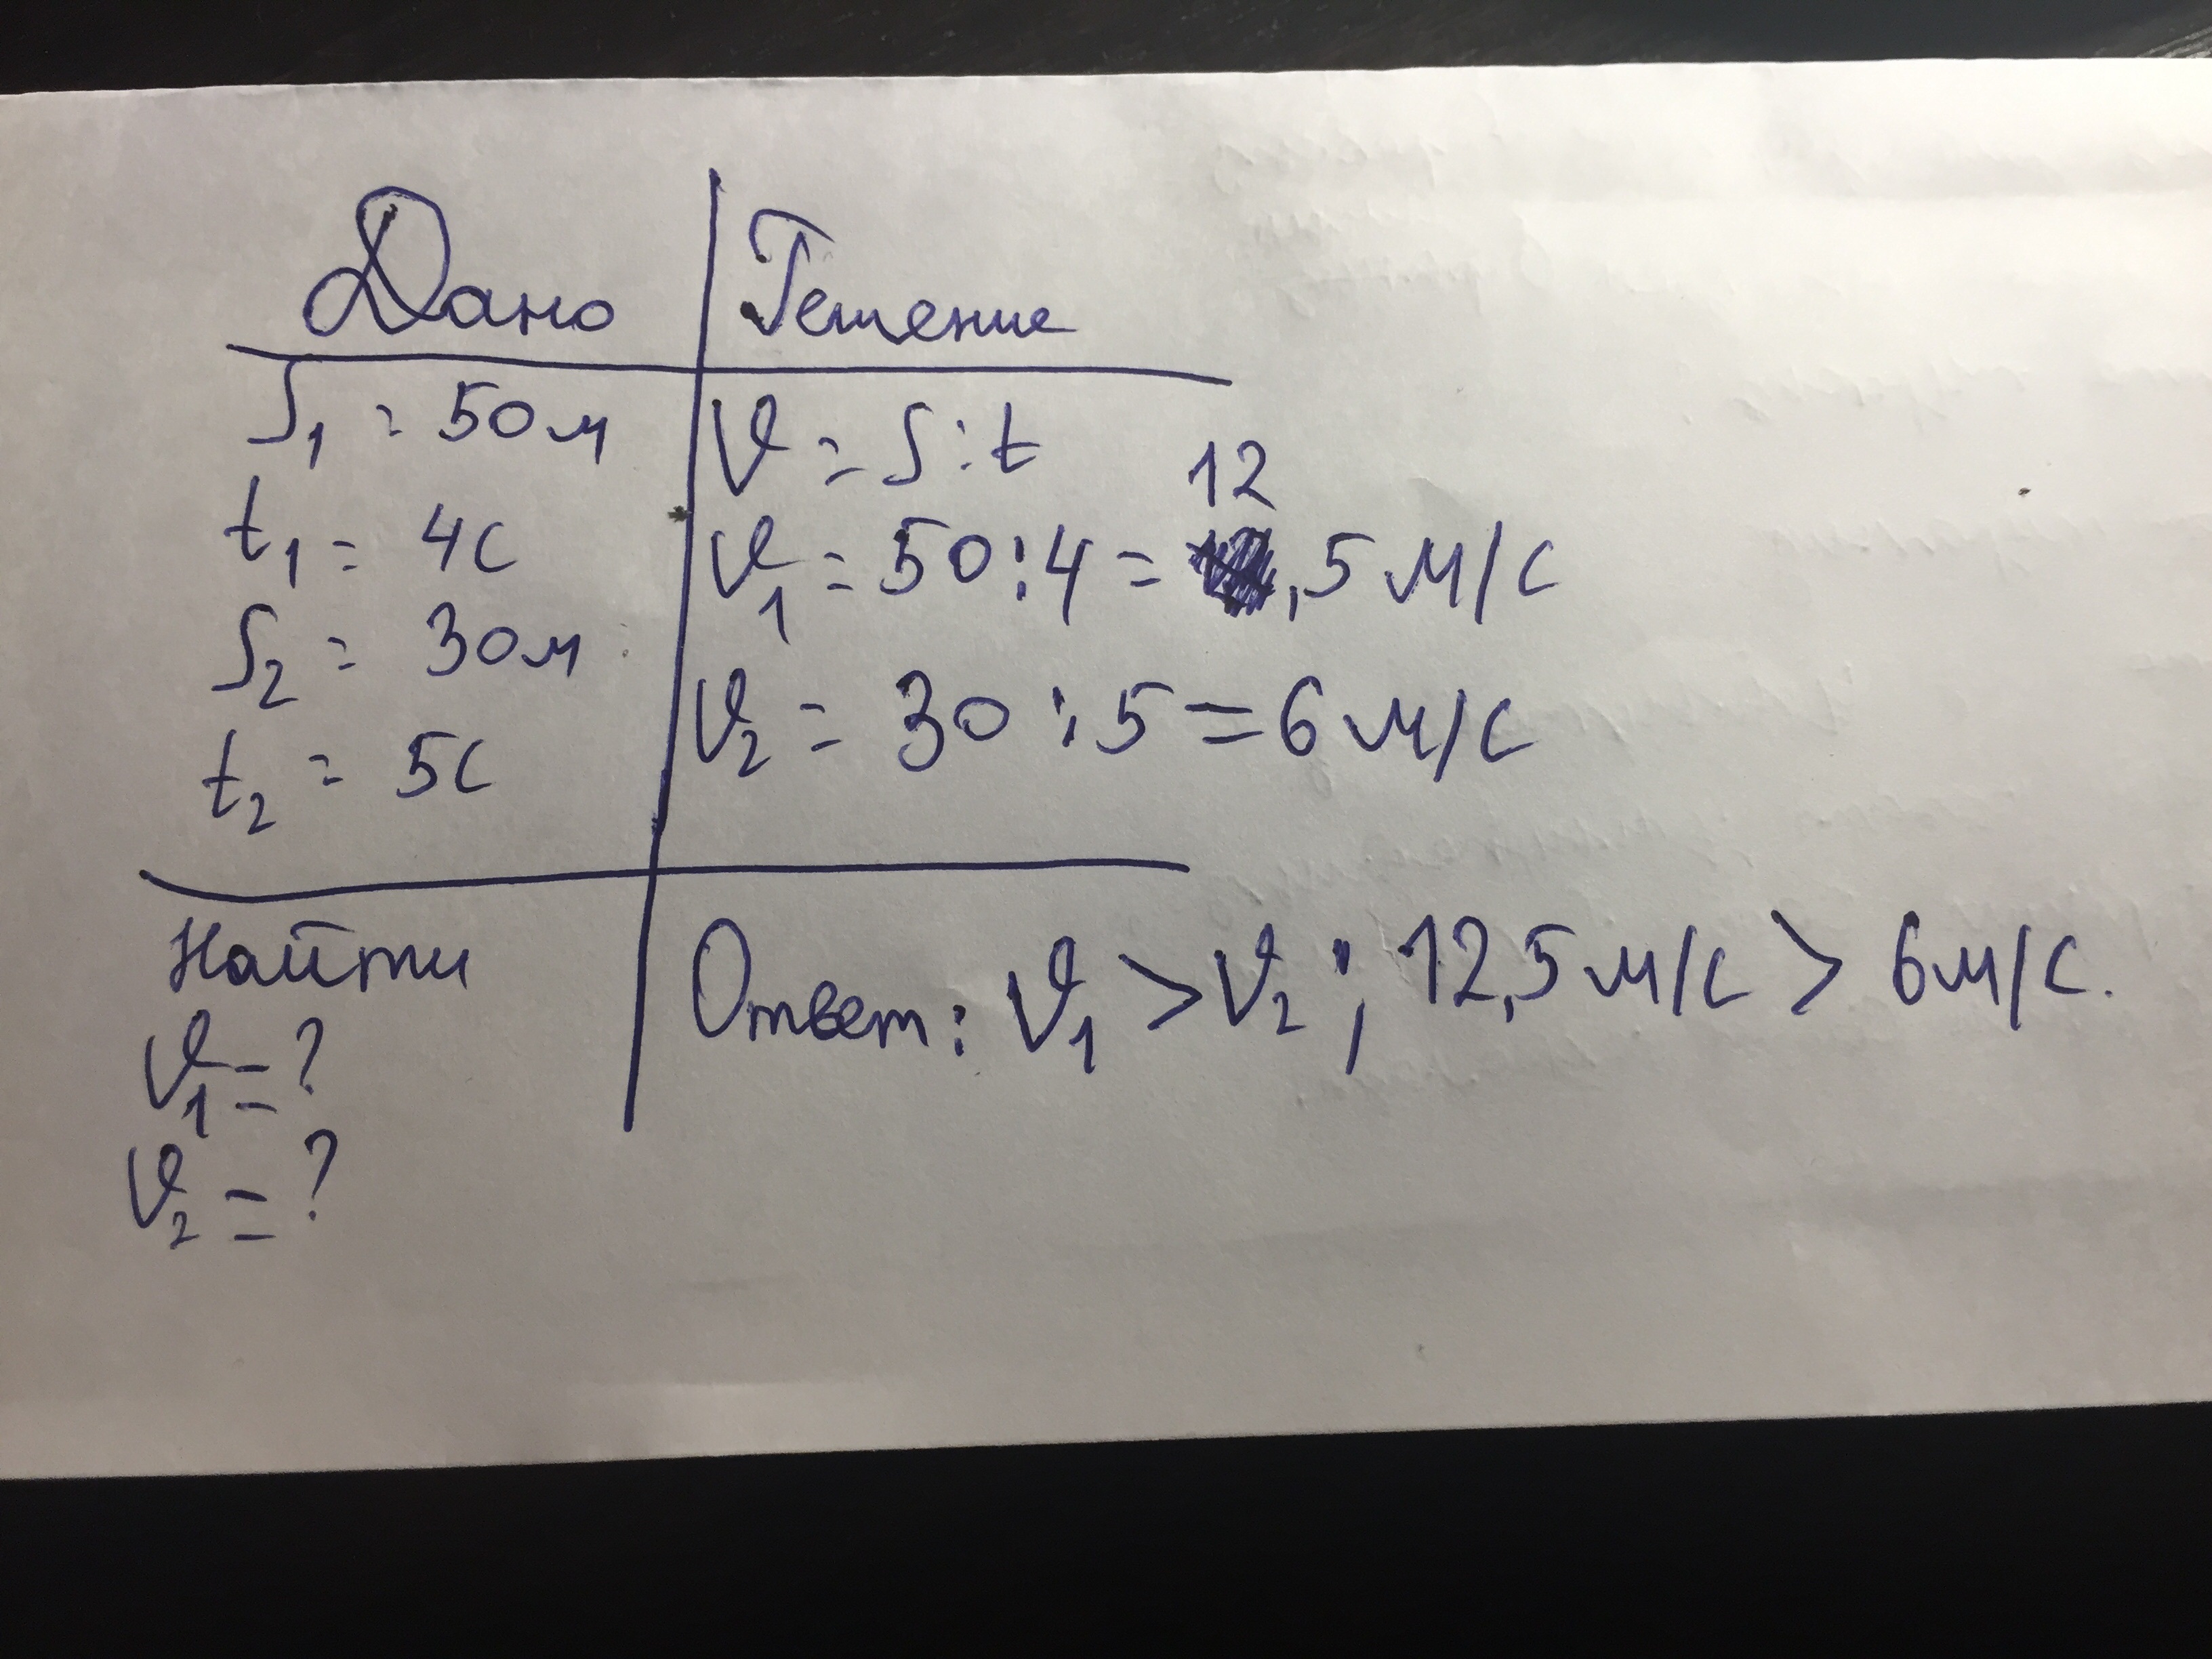 Дано
S₁ = 50м
t₁ = 4с
S₂ = 30м
t₂ = 5с
Найти
V₁ = ?
V₂ = ?
Решение
V = S : t
12
V₁ = 50 : 4 = ,5 м/с
V₂ = 30 : 5 = 6 м/с
Ответ: V₁ > V₂ ; 12,5 м/с > 6 м/с.